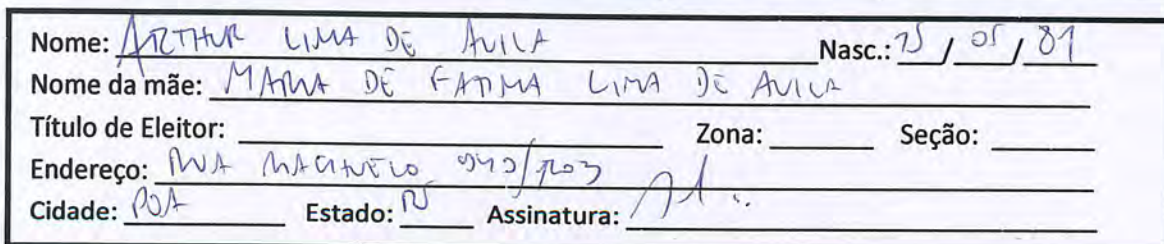 Nome: ARTHUR LIMA DE AVILA Nasc.: / 05 / 81
Nome da mãe: MARIA DE FATIMA LIMA DE AVILA
Título de Eleitor: Zona: Seção:
Endereço: RUA
Cidade: POA Estado: RS Assinatura: